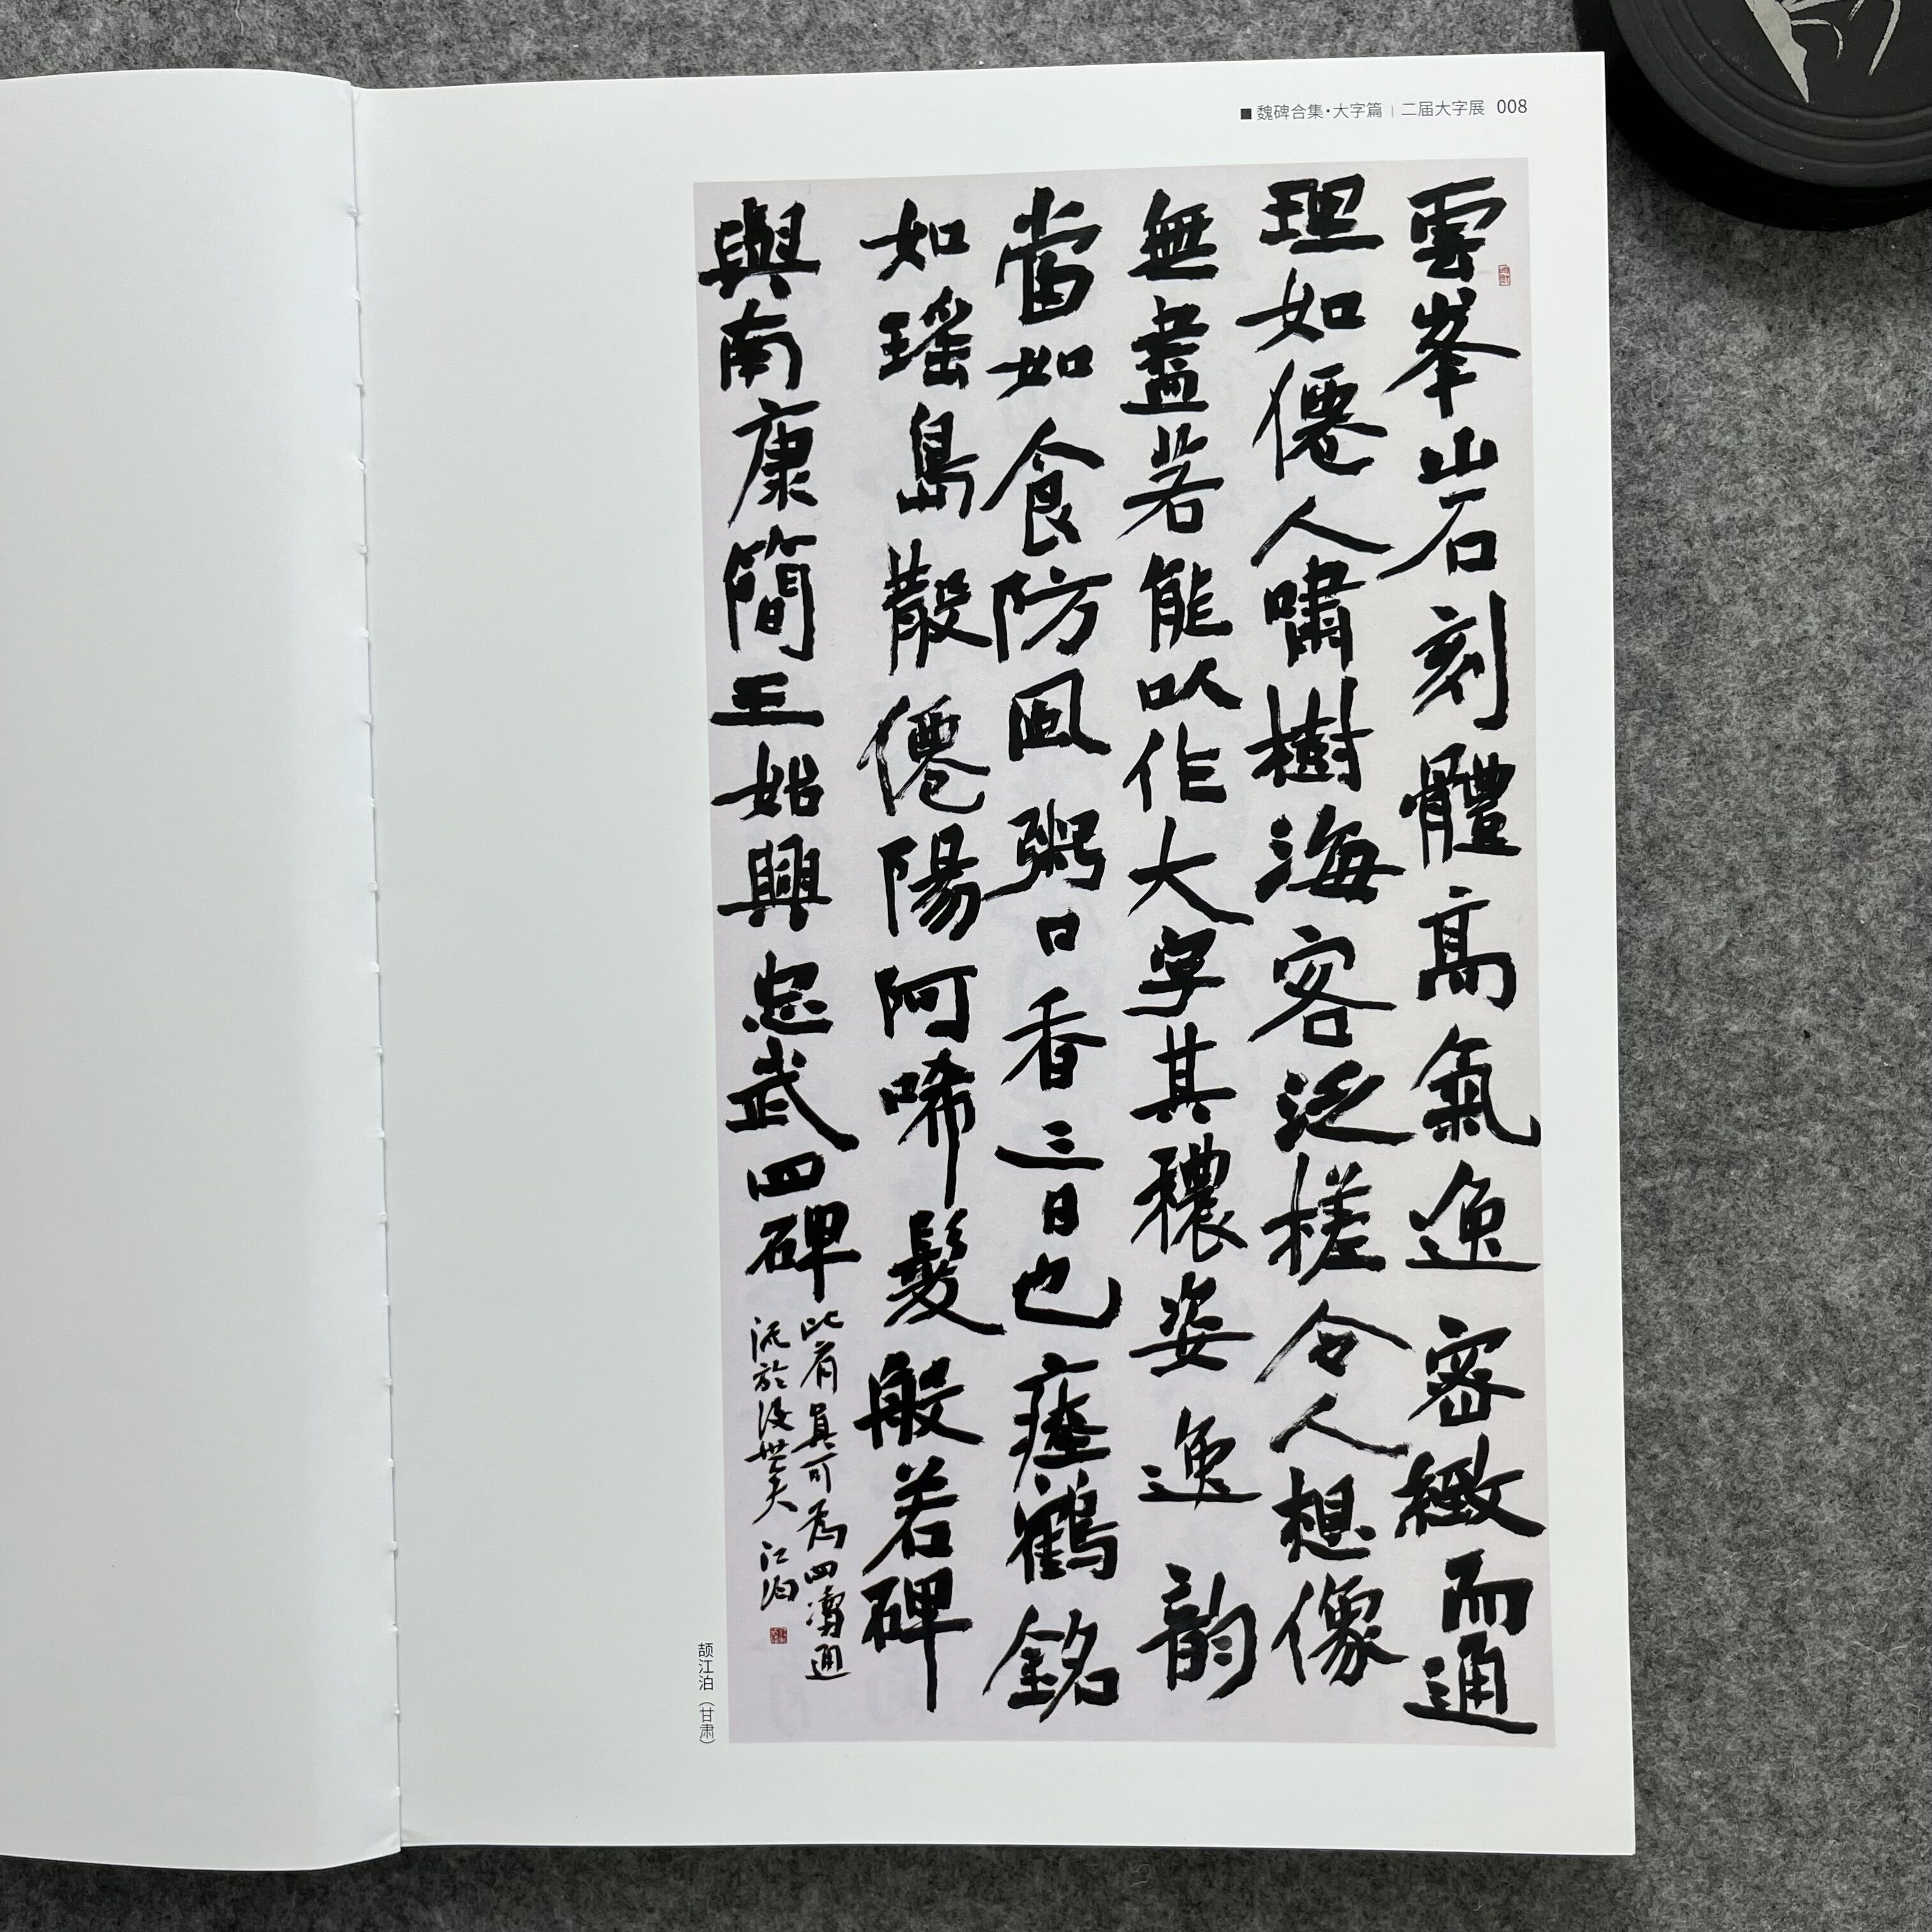 ■ 魏碑合集·大字篇 | 二届大字展 008
雲峯山石刻體高氣逸密緻而通
理如僊人嘯樹海客泛槎令人想像
無盡若能以作大字其穠姿逸韵
當如食防風粥口香三日也瘞鶴銘
如瑤島散僊陽阿晞髮般若碑
與南康簡王始興忠武四碑
此有真可為四瀆通
流於後世矣 江泊
颉江泊（甘肃）